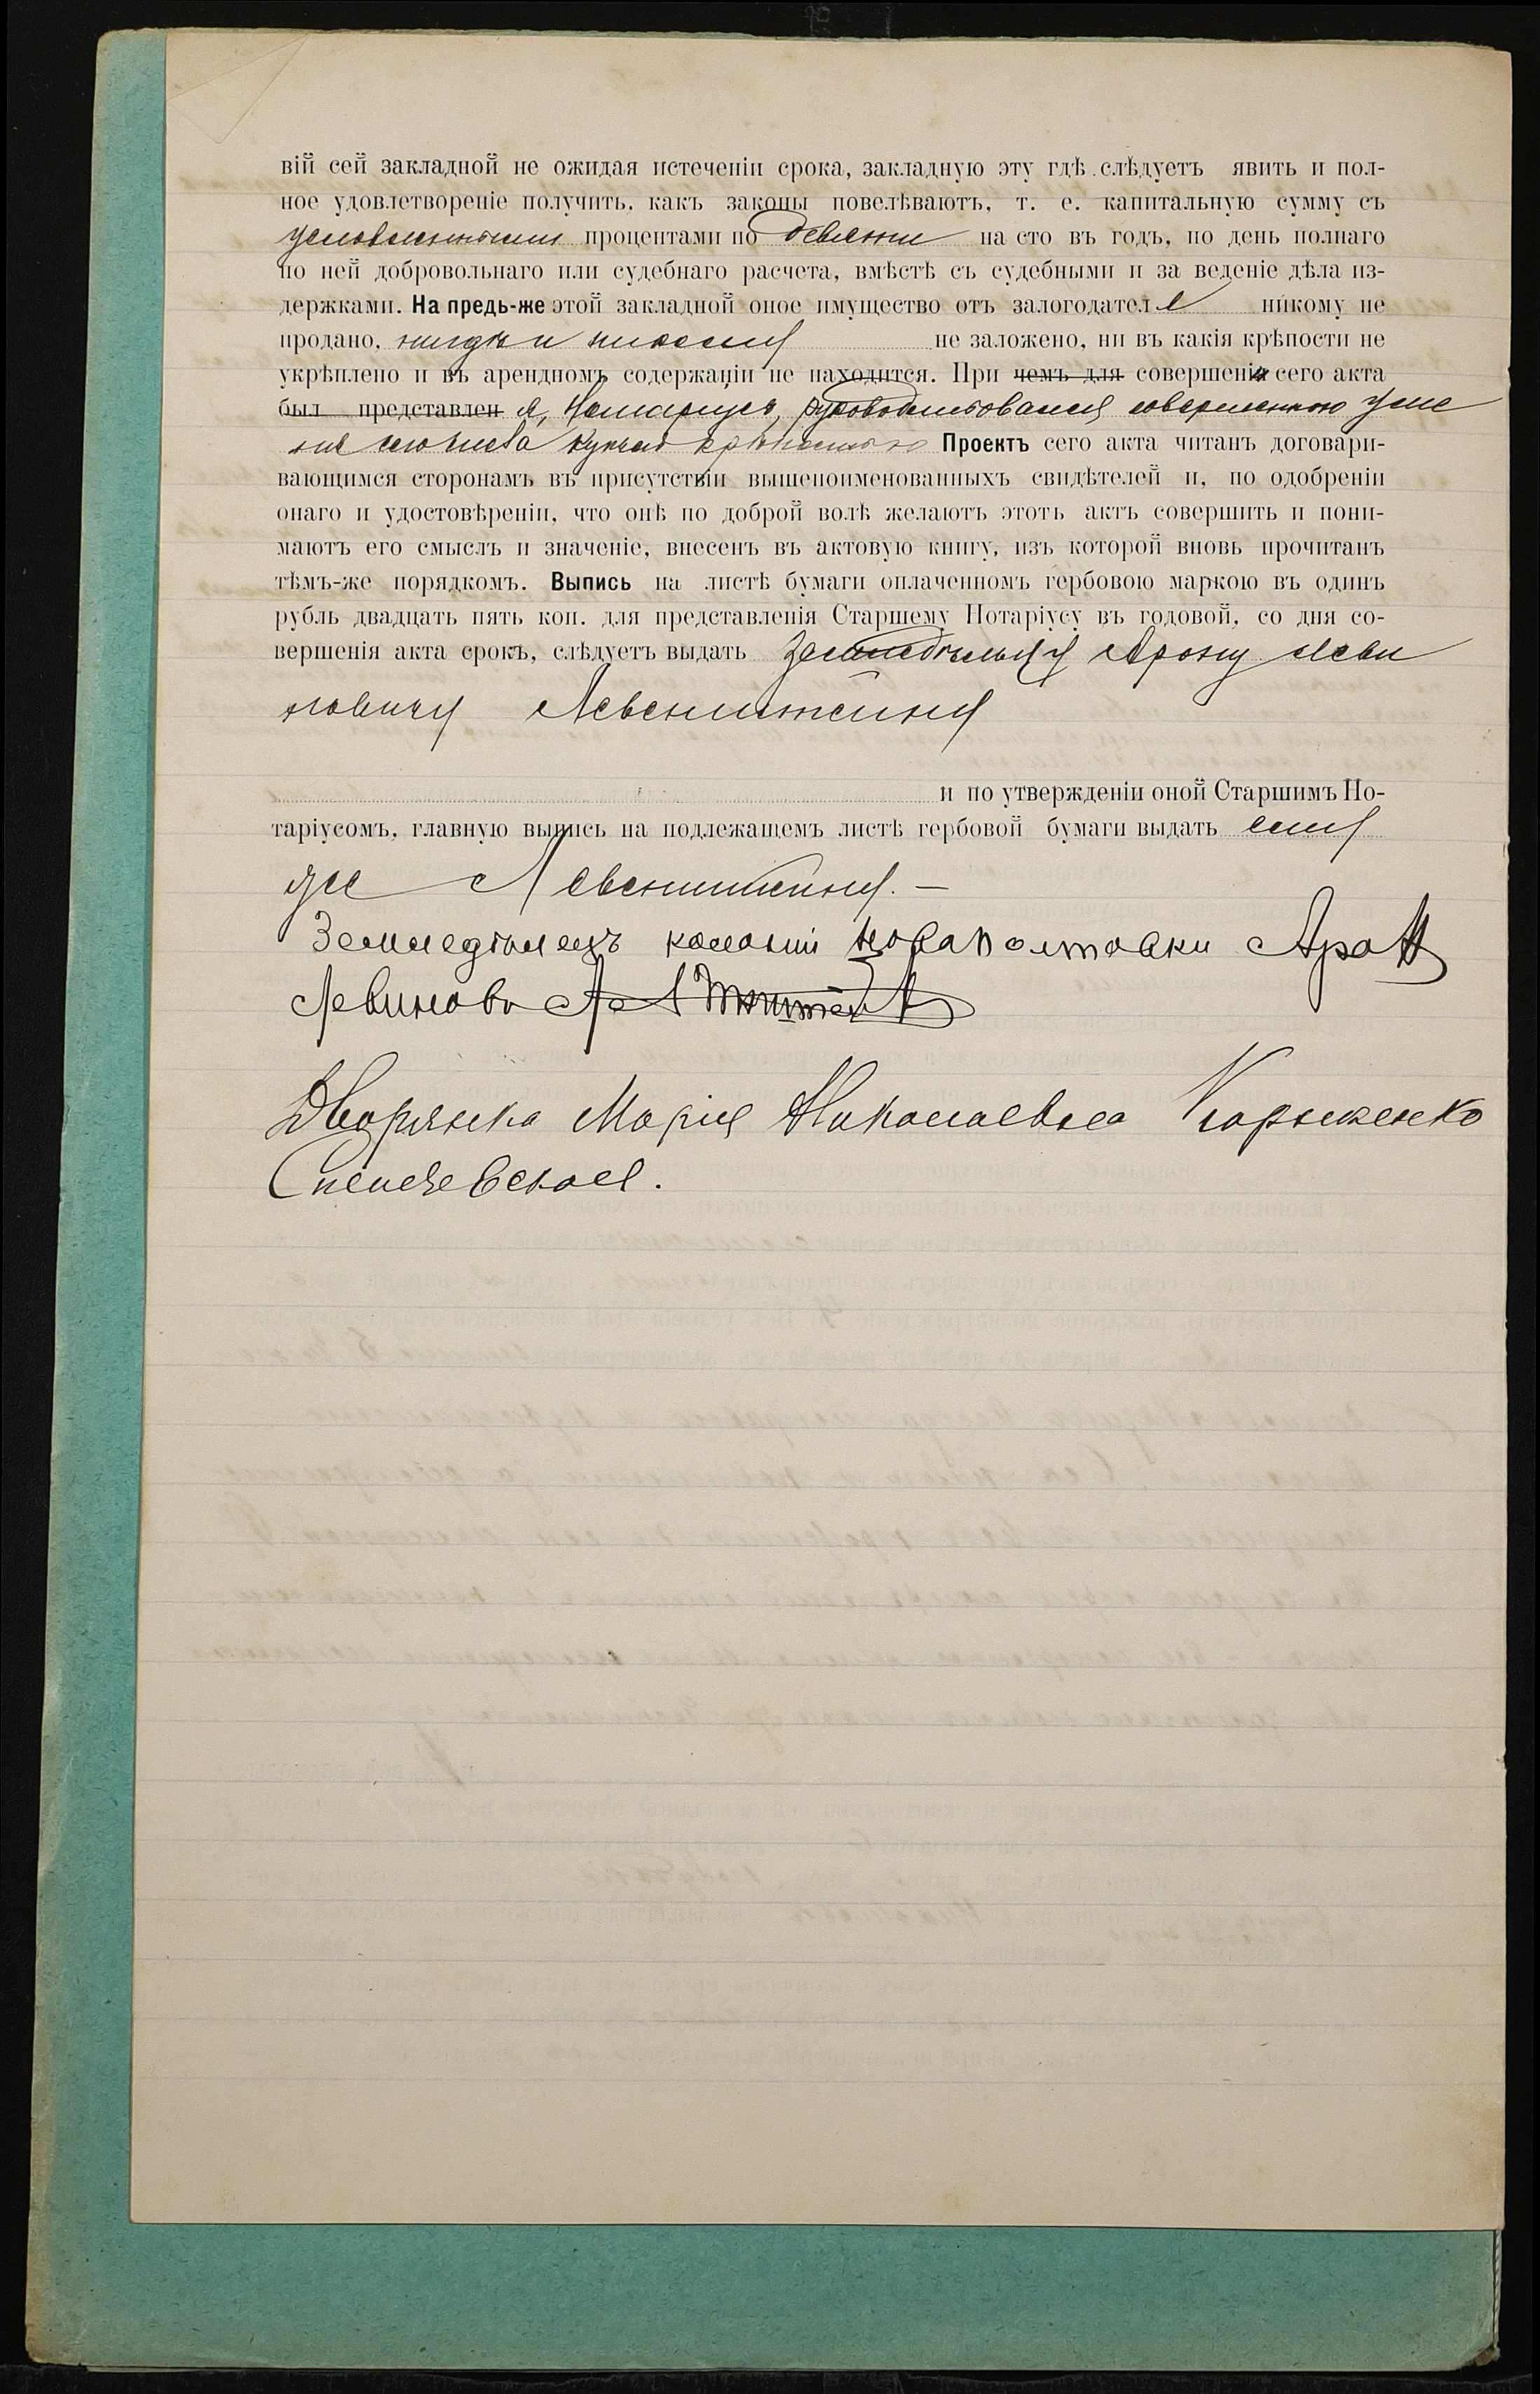 вій сей закладной не ожидая истеченіи срока, закладную эту гдѣ слѣдуетъ явить и пол-
ное удовлетвореніе получить, какъ законы повелѣваютъ, т. е. капитальную сумму съ
условленными процентами по девяти на сто въ годъ, по день полнаго
по ней добровольнаго или судебнаго расчета, вмѣстѣ съ судебными и за веденіе дѣла из-
держками. На предь-же этой закладной оное имущество отъ залогодател никому не
продано, нигдѣ и никому не заложено, ни въ какія крѣпости не
укрѣплено и въ арендномъ содержаціи не находится. При чемъ для совершенія сего акта
был представлен я, Нотаріусъ, руководствовался совершенною
сего числа купчею крѣпостью Проектъ сего акта читанъ договари-
вающимся сторонамъ въ присутствіи вышепоименованныхъ свидѣтелей и, по одобреніи
онаго и удостовѣреніи, что онѣ по доброй волѣ желаютъ этотъ актъ совершить и пони-
маютъ его смыслъ и значеніе, внесенъ въ актовую книгу, изъ которой вновь прочитанъ
тѣмъ-же порядкомъ. Выпись на листѣ бумаги оплаченномъ гербовою маркою въ одинъ
рубль двадцать пять коп. для представленія Старшему Нотаріусу въ годовой, со дня со-
вершенія акта срокъ, слѣдуетъ выдать Арону Леви
новичу Левенштейну
и по утвержденіи оной Старшимъ Но-
таріусомъ, главную выпись на подлежащемъ листѣ гербовой бумаги выдать ему
же Левенштейну. —
Земледѣлецъ колоніи Новаполтавки Арон
Левиновъ
Дворянка Марія Николаевна